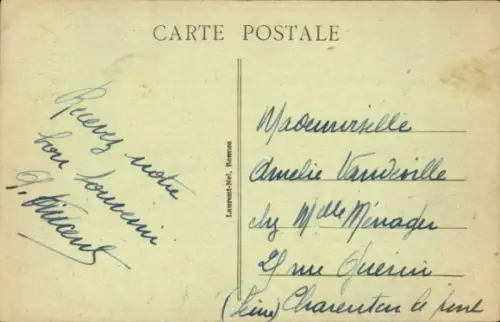 CARTE POSTALE
Recevez notre
bon souvenir
Laurent-Nel, Rennes
Mademoiselle
Amelie Vandeville
chez Mlle Ménager
rue Guérin
(Seine) Charenton le pont